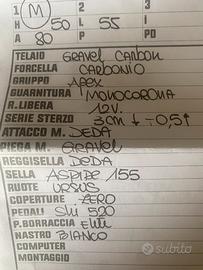 1 M 2 3
H 50 L 55 I
A 80 P PO
TELAIO GRAVEL CARBON
FORCELLA CARBONIO
GRUPPO APEX
GUARNITURA MONOCORONA
R. LIBERA 12V.
SERIE STERZO 3CM ↓ - 0,5↑
ATTACCO M. DEDA
PIEGA M. GRAVEL
REGGISELLA DEDA
SELLA ASPIDE 155
RUOTE URSUS
COPERTURE ZERO
PEDALI SHI 520
P.BORRACCIA ELITE
NASTRO BIANCO
COMPUTER
MONTAGGIO
subito